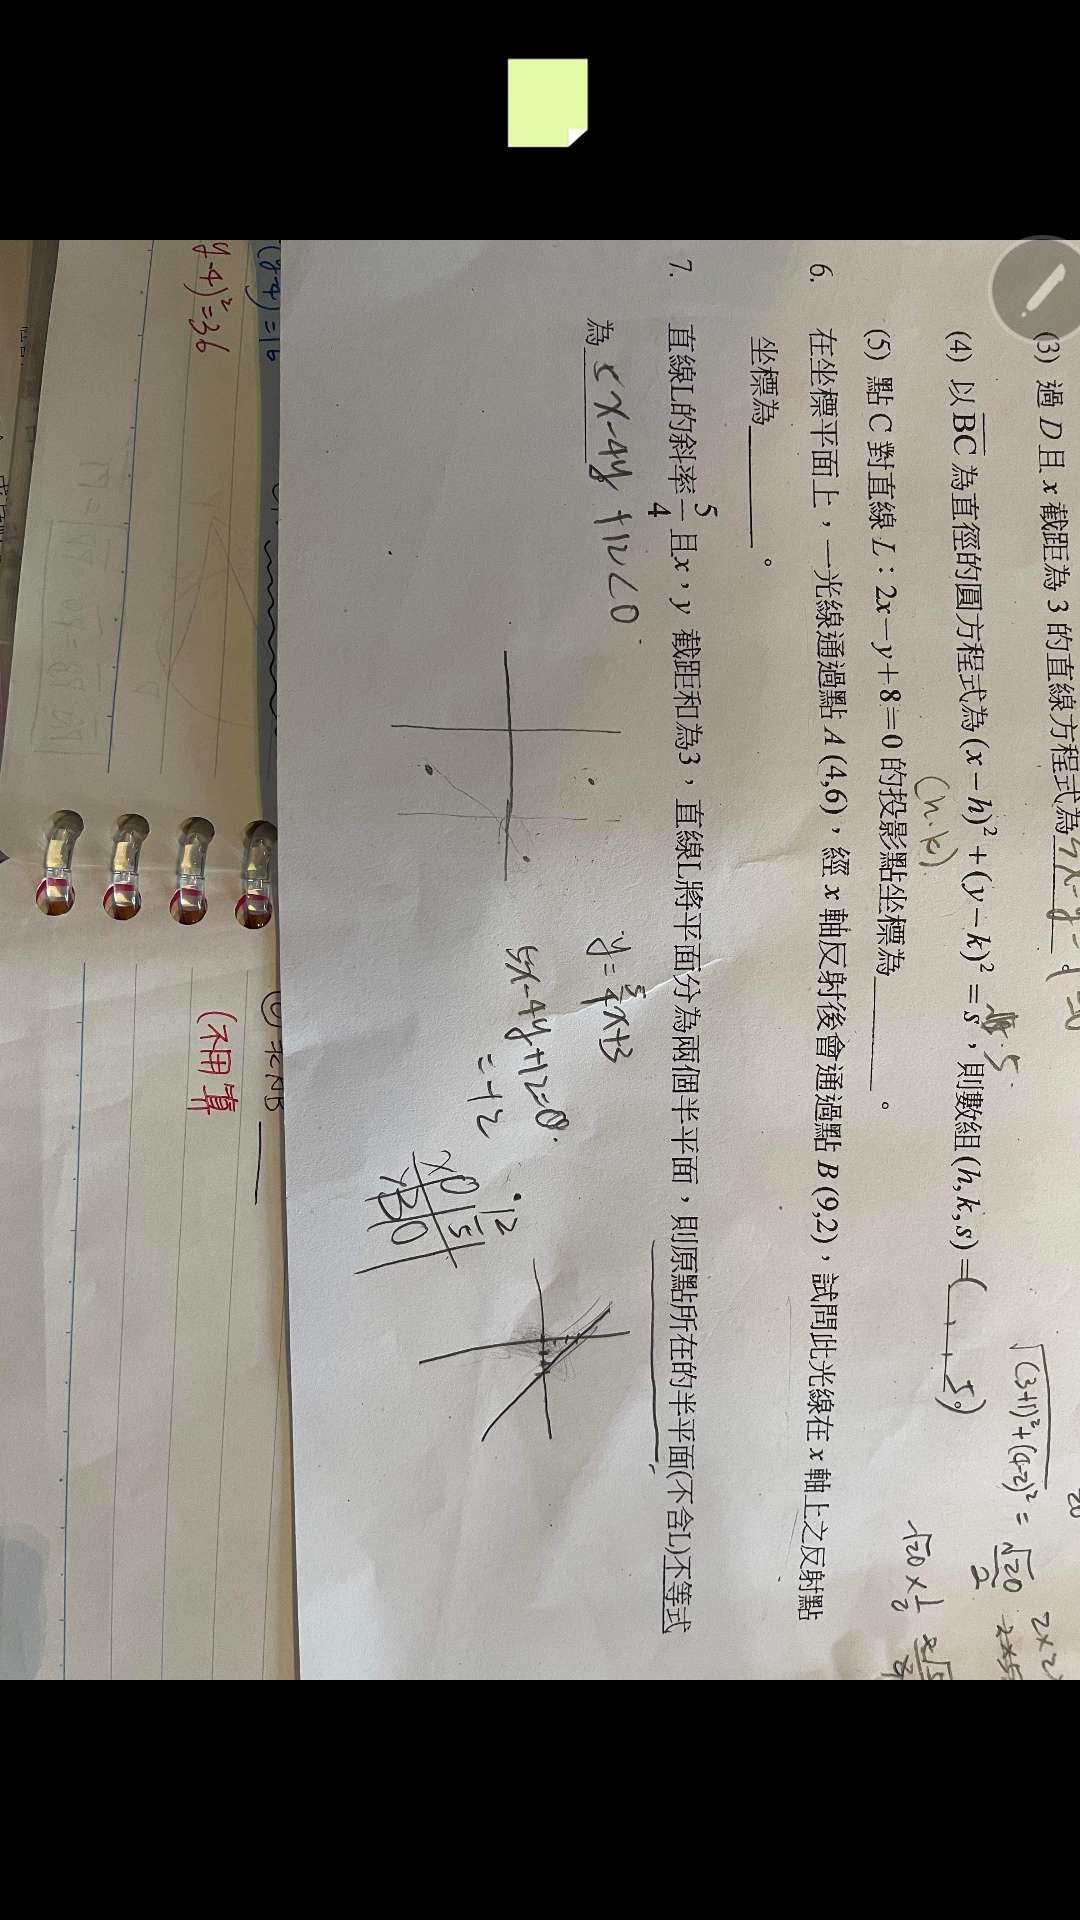 (3) 過 D 且 x 截距為 3 的直線方程式為
(4) 以 BC 為直徑的圓方程式為 (x−h)²+(y−k)²=s，則數組(h,k,s)=( , , 5)。
(h.k).
5.
√(3+1)²+(4-2)² = √20
2
√20×1/2
(5) 點 C 對直線 L：2x−y+8=0 的投影點坐標為________。
6. 在坐標平面上，一光線通過點 A (4,6)，經 x 軸反射後會通過點 B (9,2)，試問此光線在 x 軸上之反射點
坐標為________。
7. 直線L的斜率5/4且x，y 截距和為3，直線L將平面分為兩個半平面，則原點所在的半平面(不含L)不等式
為 5x-4y+12<0.
y=5/4x+3
5x-4y+12=0.
=-12
x 0
(y-4)²=36
(不用算